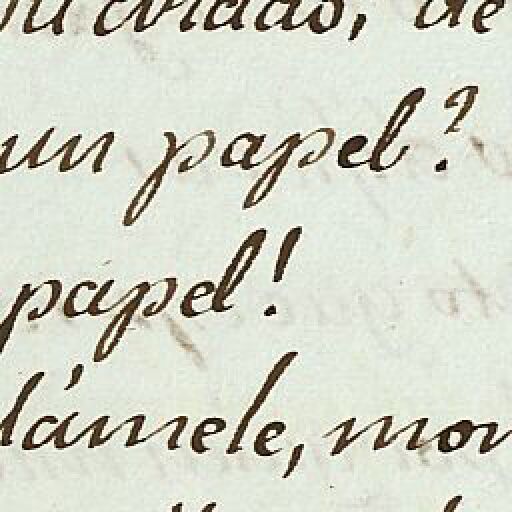 cuidado, de
un papel?
papel!
dámele, mon